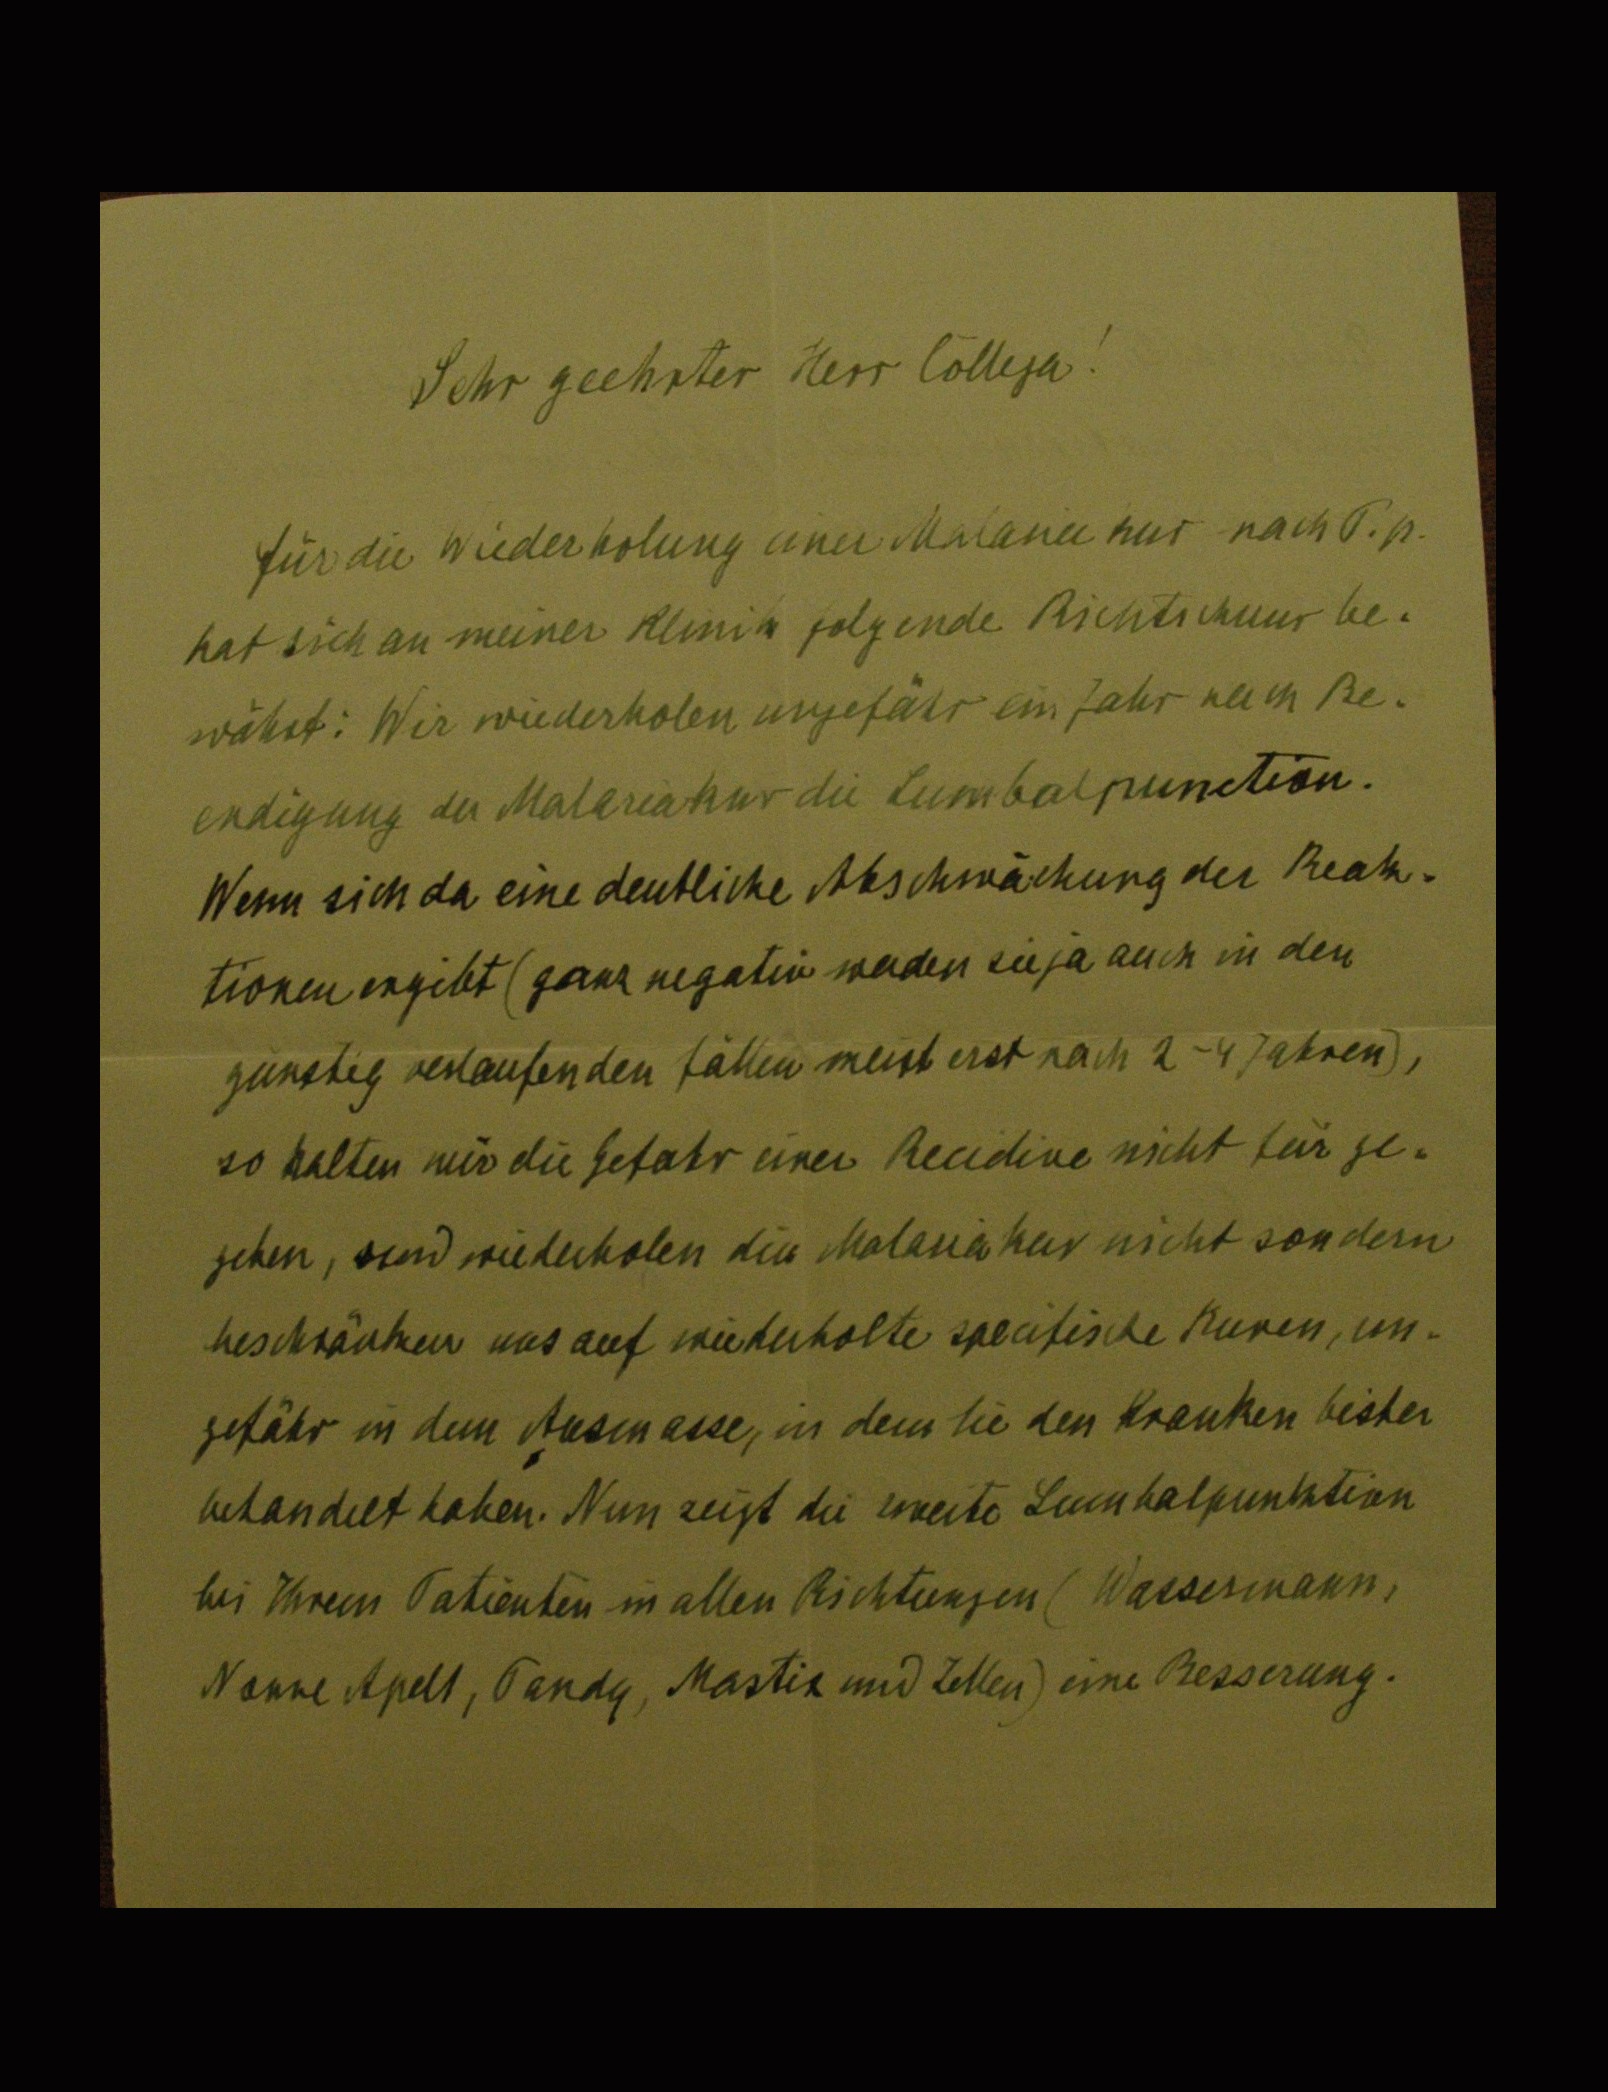 Sehr geehrter Herr Collega!
für die Wiederholung einer Malariakur nach P. p.
hat sich an meiner Klinik folgende Richtschnur be-
währt: Wir wiederholen ungefähr ein Jahr nach Be-
endigung der Malariakur die Lumbalpunction.
Wenn sich da eine deutliche Abschwächung der Reak-
tionen ergibt (ganz negativ werden sie ja auch in den
günstig verlaufenden Fällen meist erst nach 2-4 Jahren),
so halten wir die Gefahr einer Recidive nicht für ge-
geben, und wiederholen die Malariakur nicht sondern
beschränken uns auf wiederholte specifische Kuren, un-
gefähr in dem Ausmasse, in dem Sie den Kranken bisher
behandelt haben. Nun zeigt die zweite Lumbalpunktion
bei Ihrem Patienten in allen Richtungen (Wassermann,
Nonne Apelt, Pandy, Mastix und Zellen) eine Besserung.